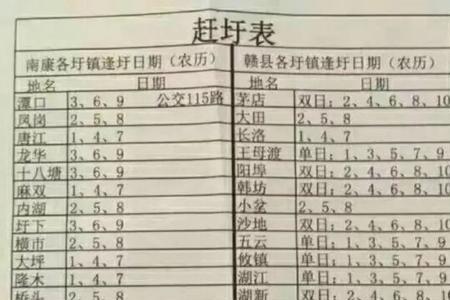 赶圩表
南康各圩镇逢圩日期（农历） 赣县各圩镇逢圩日期（农历）
地名 日期 地名 日期
潭口 3、6、9 公交115路 茅店 双日：2、4、6、8、10
凤岗 2、5、8 大田 2、5、8
唐江 1、4、7 长洛 1、4、7
龙华 3、6、9 王母渡 单日：1、3、5、7、9
十八塘 3、6、9 阳埠 双日：2、4、6、8、10
麻双 1、4、7 韩坊 双日：2、4、6、8、10
内湖 2、5、8 小坌 2、5、8
圩下 3、6、9 沙地 双日：2、4、6、8、10
横市 2、5、8 五云 单日：1、3、5、7、9
大坪 1、4、7 攸镇 单日：1、3、5、7、9
隆木 1、4、7 湖江 单日：1、3、5、7、9
桥头 2、5、8 湖新 双日：2、4、6、8、10